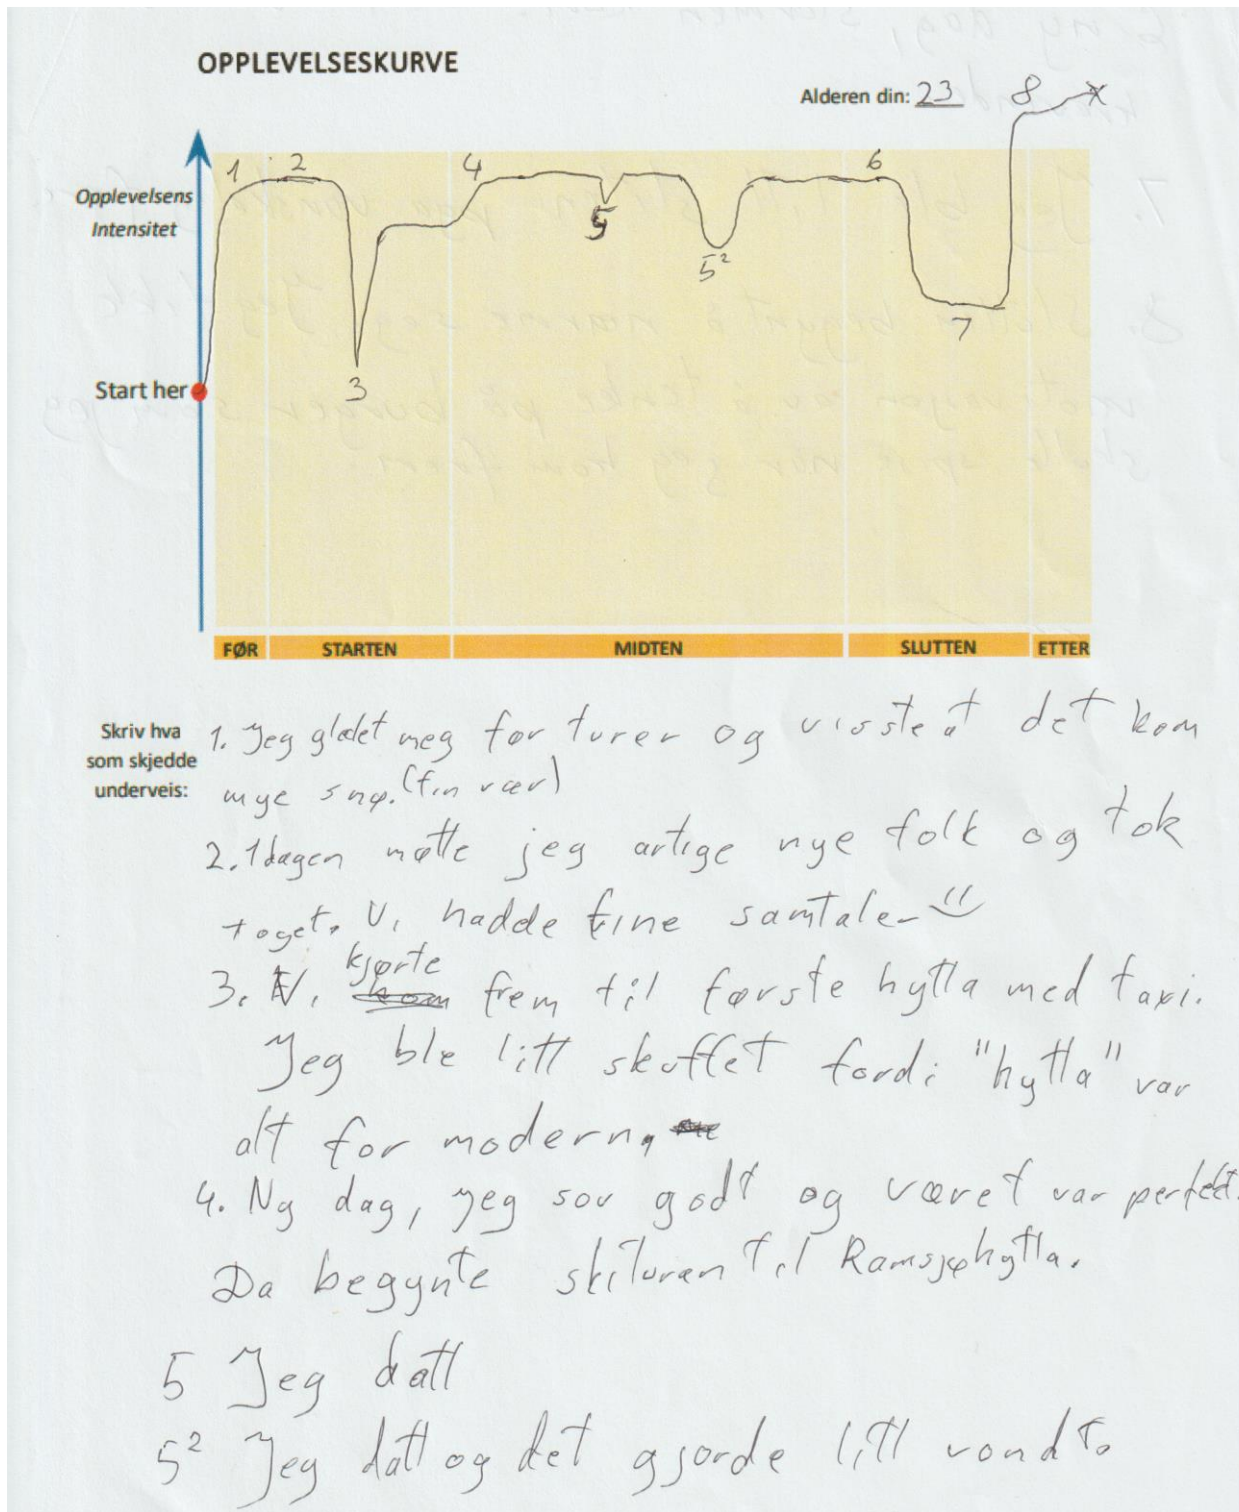 OPPLEVELSESKURVE
Alderen din: 23
8
Opplevelsens
Intensitet
1
2
4
6
5
5²
7
Start her
3
FØR STARTEN MIDTEN SLUTTEN ETTER
Skriv hva
som skjedde
underveis:
1. Jeg gledet meg for turer og visste at det kom
mye snø. (fin vær)
2. 1 dagen møtte jeg artige nye folk og tok
toget. Vi hadde fine samtaler
3. Vi kjørte frem til første hytta med taxi.
Jeg ble litt skuffet fordi "hytta" var
alt for modern.
4. Ny dag, jeg sov godt og været var perfekt.
Da begynte skituren til Ramsjøhytta.
5 Jeg datt
5² Jeg datt og det gjorde litt vondt.